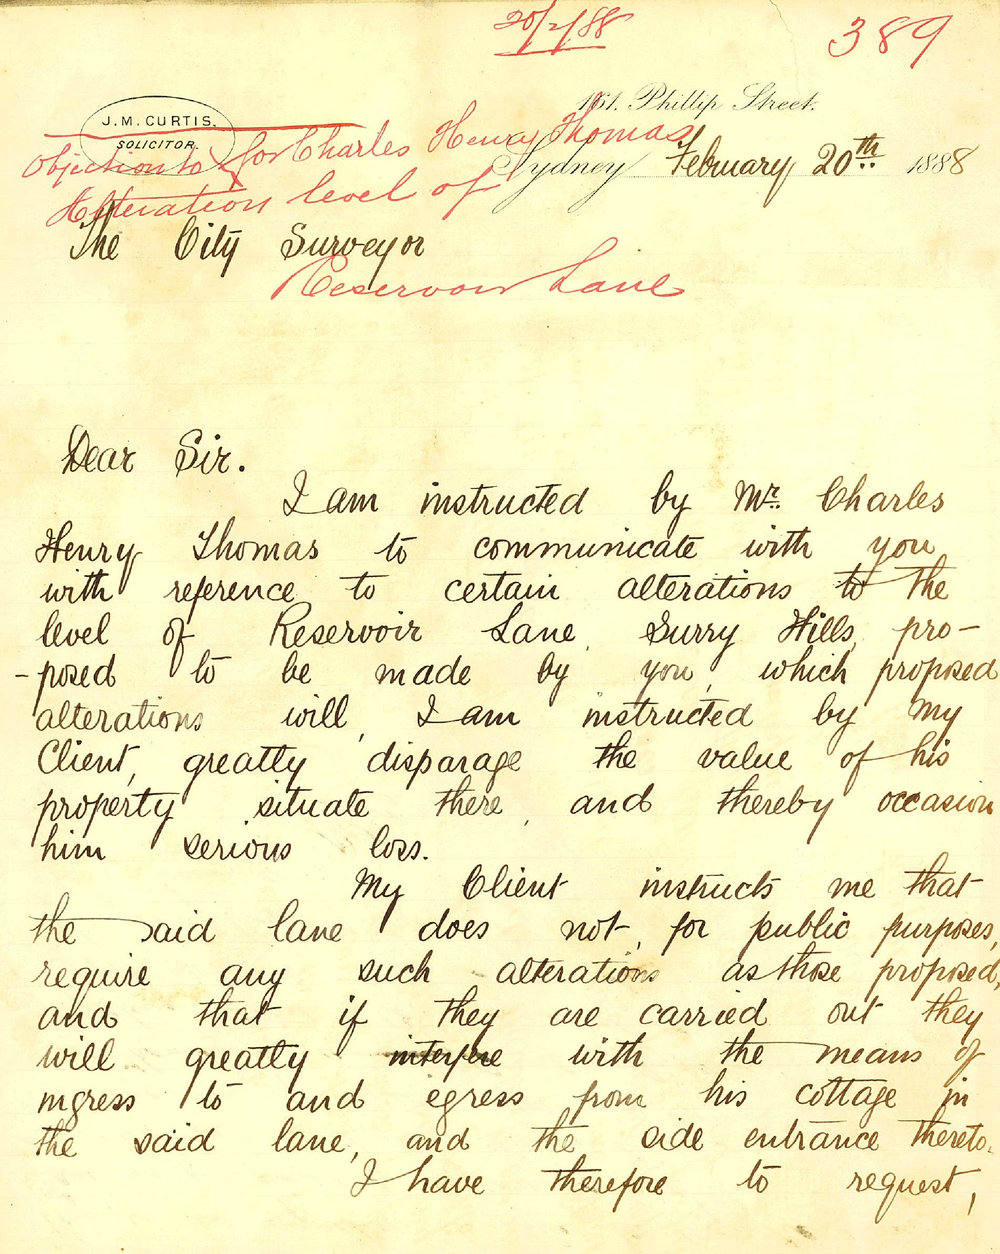 20/2/88
389
J. M. CURTIS.
SOLICITOR.
161. Phillip Street.
Sydney February 20th 1888
Objection to for Charles Henry Thomas
Alteration level of
Reservoir Lane
The City Surveyor
Dear Sir.
I am instructed by Mr. Charles
Henry Thomas to communicate with you
with reference to certain alterations to the
level of Reservoir Lane, Surry Hills, pro-
-posed to be made by you, which proposed
alterations will, I am instructed by my
Client, greatly disparage the value of his
property situate there, and thereby occasion
him serious loss.
My Client instructs me that
the said lane does not, for public purposes,
require any such alterations as those proposed,
and that if they are carried out they
will greatly interfere with the means of
ingress to and egress from his cottage in
the said lane, and the side entrance thereto.
I have therefore to request,